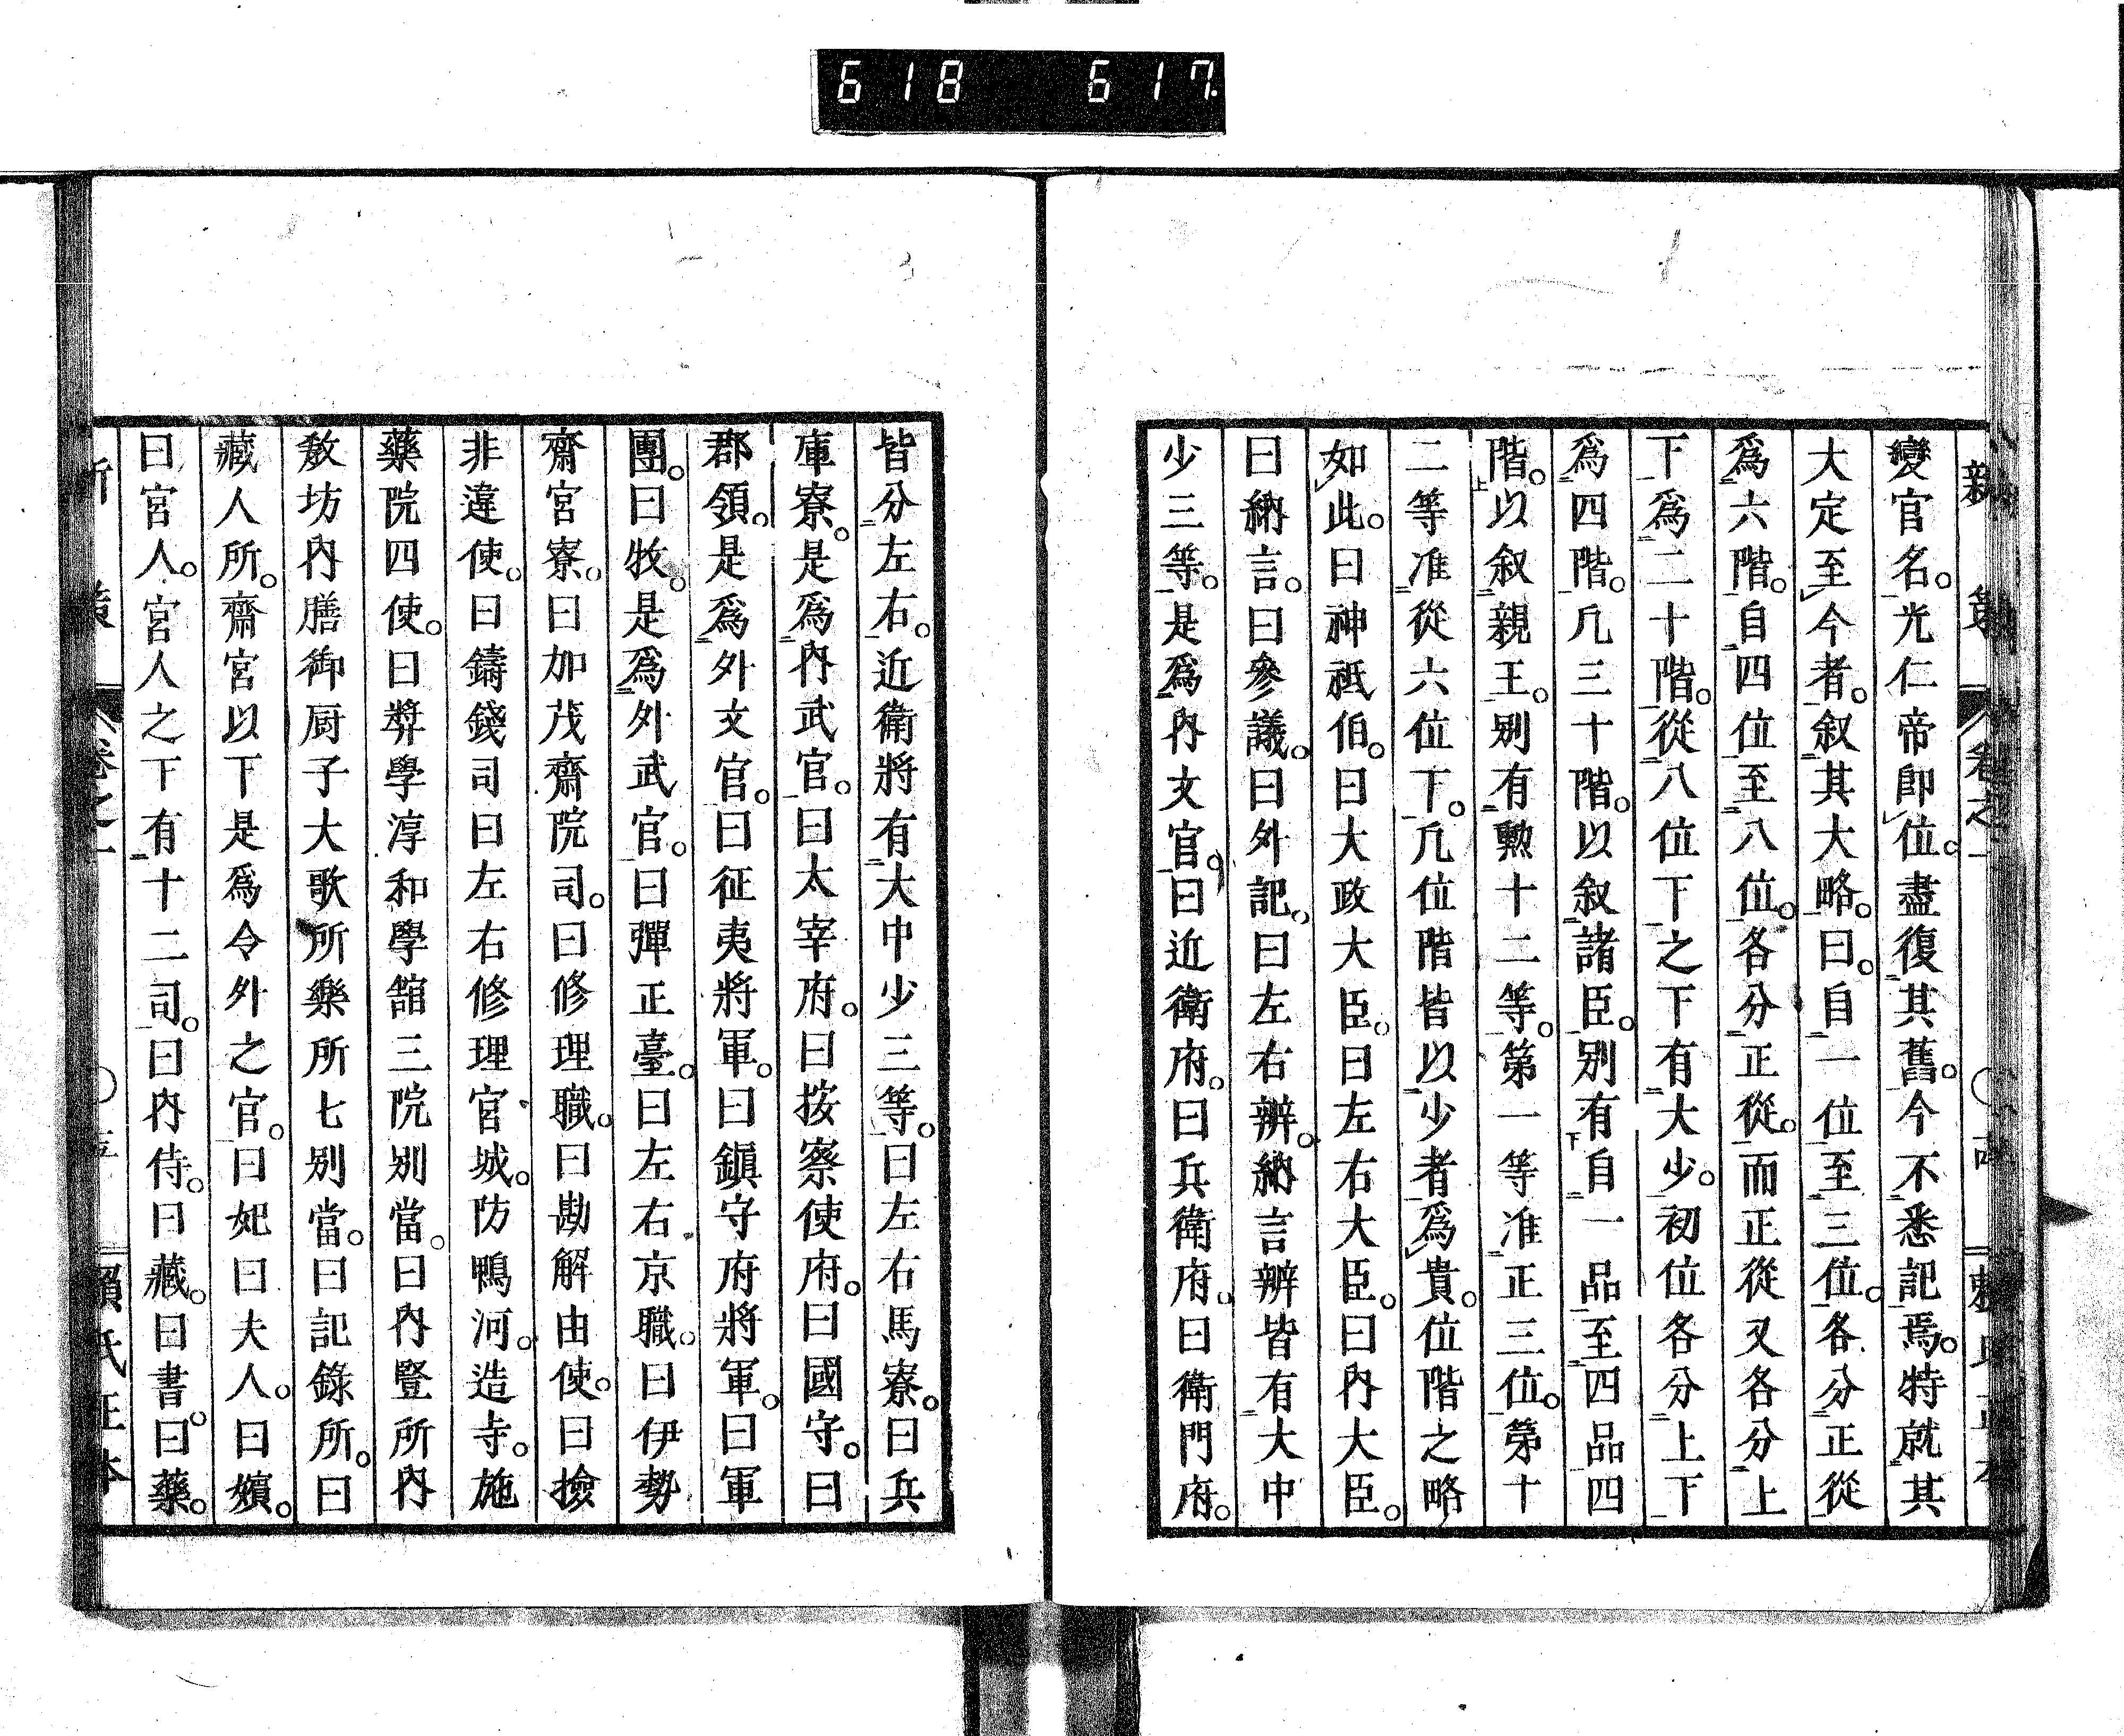 618 617
變官名。光仁帝即位。盡復其舊。今不悉記焉。特就其
大定至今者。叙其大略。曰。自一位至三位。各分正從
爲六階。自四位至八位。各分正從。而正從又各分上
下爲二十階。從八位下之下有大少。初位各分上下
爲四階。凡三十階。以叙諸臣。別有自一品至四品四
階。以叙親王。別有勲十二等。第一等准正三位。第十
二等准從六位下。凡位階皆以少者爲貴。位階之略
如此。曰神祗伯。曰大政大臣。曰左右大臣。曰內大臣。
曰納言。曰參議。曰外記。曰左右辨。納言辨皆有大中
少三等。是爲內文官。曰近衛府。曰兵衛府。曰衛門府。
皆分左右。近衛將有大中少三等。曰左右馬寮。曰兵
庫寮。是爲內武官。曰太宰府。曰按察使府。曰國守。曰
郡領。是爲外文官。曰征夷將軍。曰鎭守府將軍。曰軍
團。曰牧。是爲外武官。曰彈正臺。曰左右京職。曰伊勢
齋宮寮。曰加茂齋院司。曰修理職。曰勘解由使。曰撿
非違使。曰鑄錢司曰左右修理宮城。防鴨河。造寺。施
藥院四使。曰奬學淳和學館三院別當。曰內豎所內
敎坊內膳御厨子大歌所樂所七別當。曰記錄所。曰
藏人所。齋宮以下是爲令外之官。曰妃曰夫人。曰嬪。
曰宮人。宮人之下有十二司。曰內侍。曰藏。曰書。曰藥。